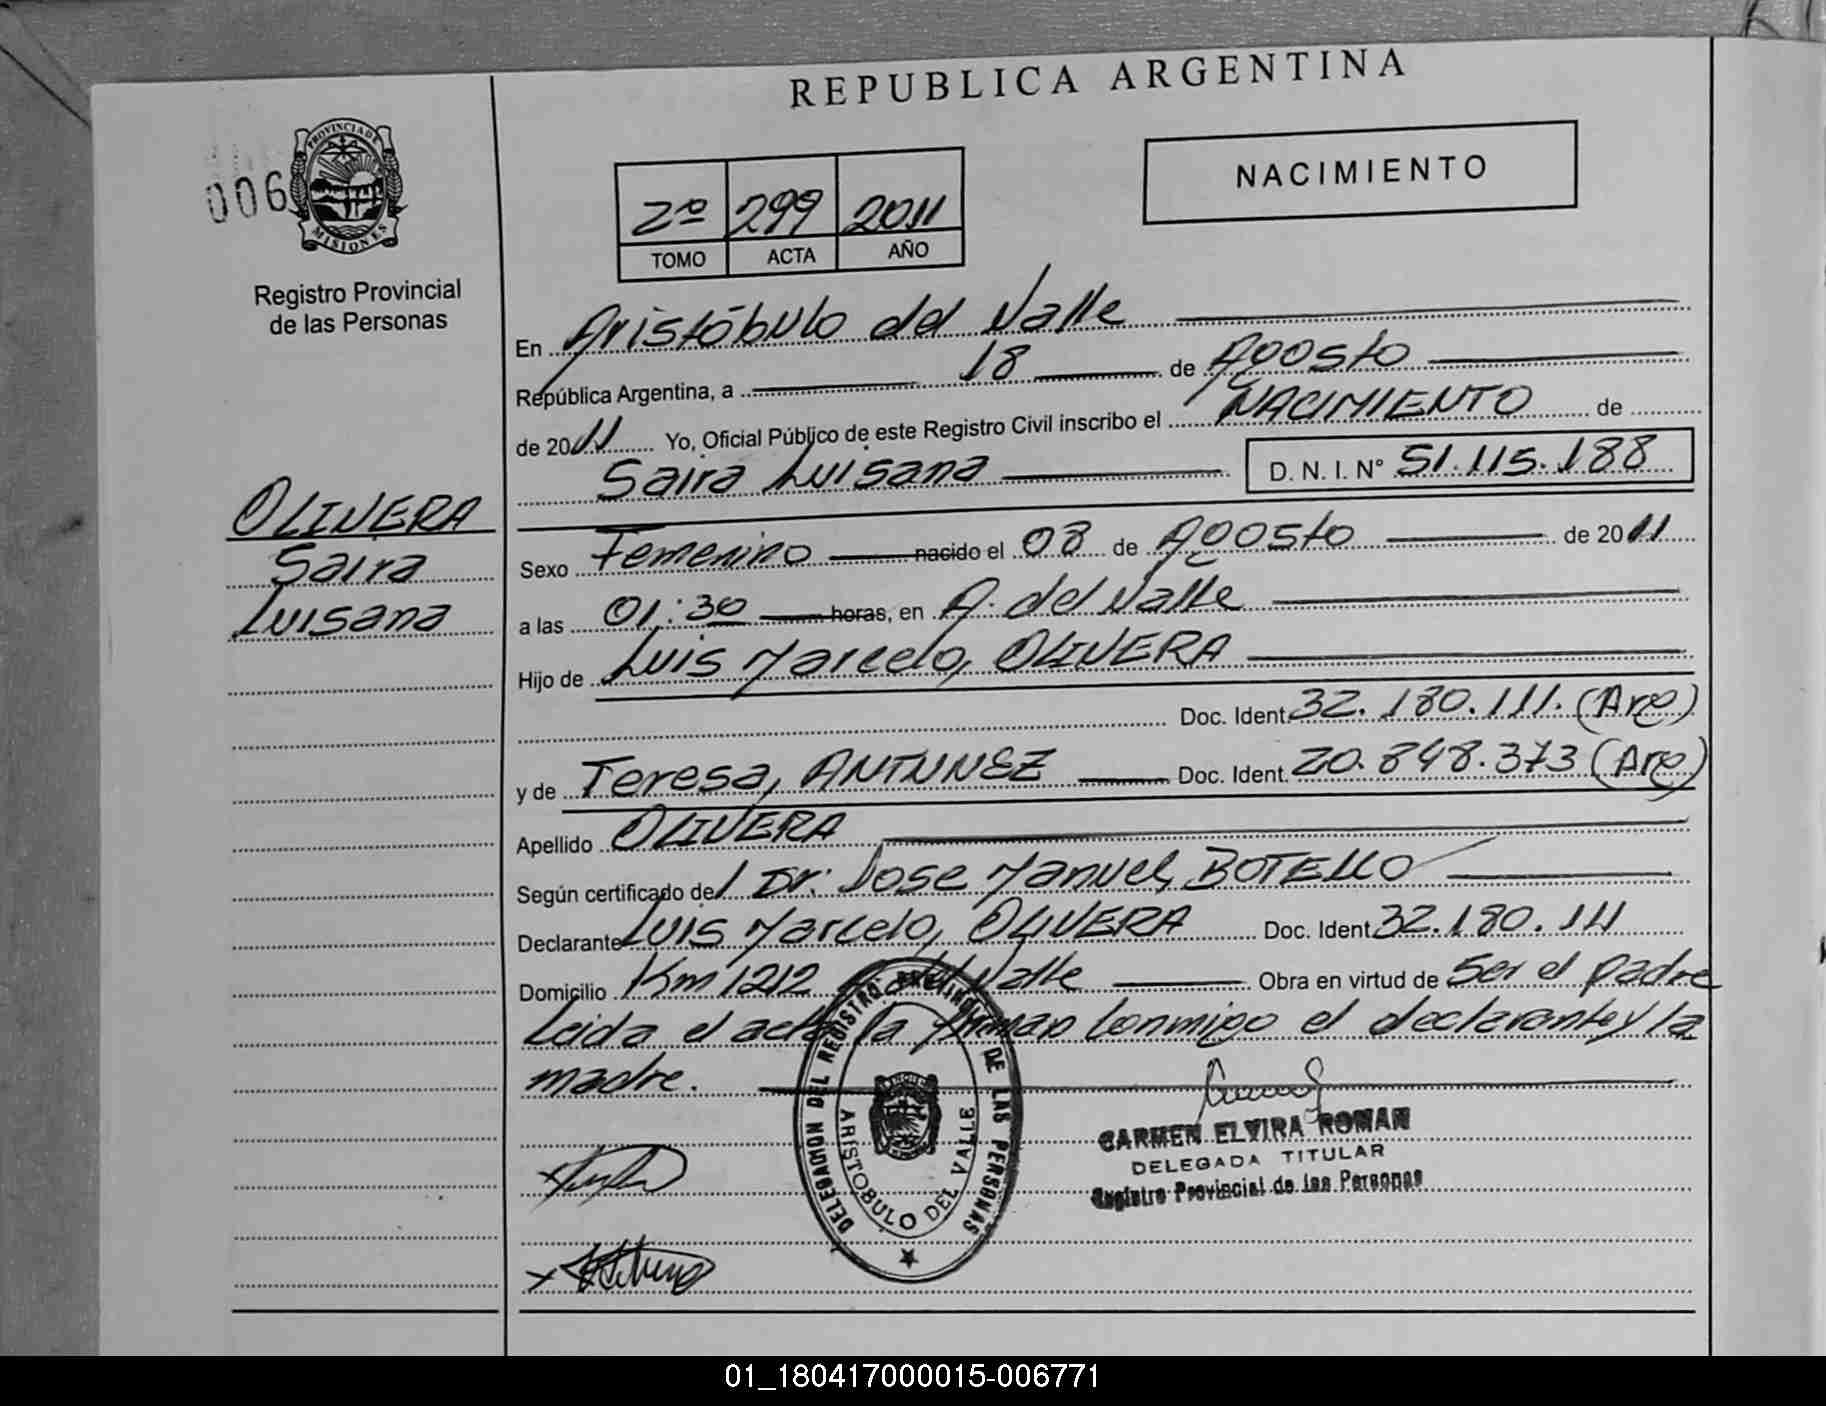 REPUBLICA ARGENTINA
NACIMIENTO
006
PROVINCIA DE MISIONES
Registro Provincial
de las Personas
2º 299 2011
TOMO ACTA AÑO
En Aristóbulo del Valle
República Argentina, a 18 de Agosto
de 2011 Yo, Oficial Público de este Registro Civil inscribo el NACIMIENTO de
Saira Luisana D. N. I. N° 51.115.188
OLIVERA
Saira
Luisana
Sexo Femenino nacido el 08 de Agosto de 2011
a las 01:30 horas, en A. del Valle
Hijo de Luis Marcelo, OLIVERA
Doc. Ident. 32.180.111. (Arg)
y de Teresa, ANTUNEZ Doc. Ident. 20.848.373 (Arg)
Apellido OLIVERA
Según certificado del Dr. Jose Manuel, BOTELLO
Declarante Luis Marcelo, OLIVERA Doc. Ident 32.180.111
Domicilio Km 1212 A. del Valle Obra en virtud de Ser el padre
Leida el acta la firman conmigo el declarante y la
madre.
DELEGACION DEL REGISTRO PROVINCIAL DE LAS PERSONAS
ARISTOBULO DEL VALLE
CARMEN ELVIRA ROMAN
DELEGADA TITULAR
Registro Provincial de las Personas
01_180417000015-006771